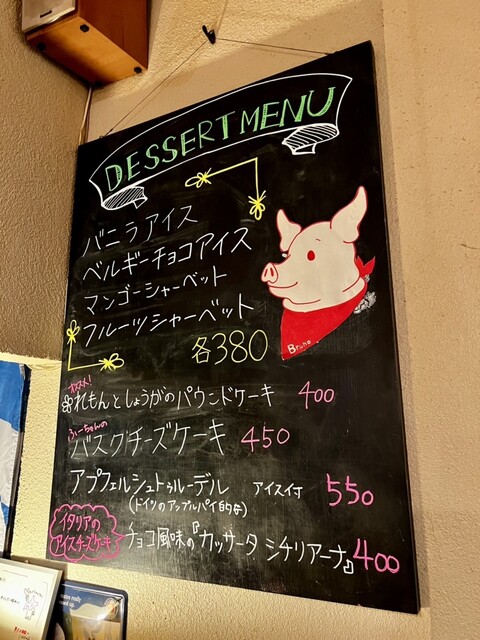 DESSERT MENU
バニラアイス
ベルギーチョコアイス
マンゴーシャーベット
フルーツシャーベット
各380
Bruno
オススメ!
れもんとしょうがのパウンドケーキ 400
ふーちゃんの
バスクチーズケーキ 450
アプフェルシュトゥルーデル アイス付 550
(ドイツのアップルパイ的な)
イタリアの
アイスチーズケーキ
チョコ風味の『カッサータ シチリアーナ』400